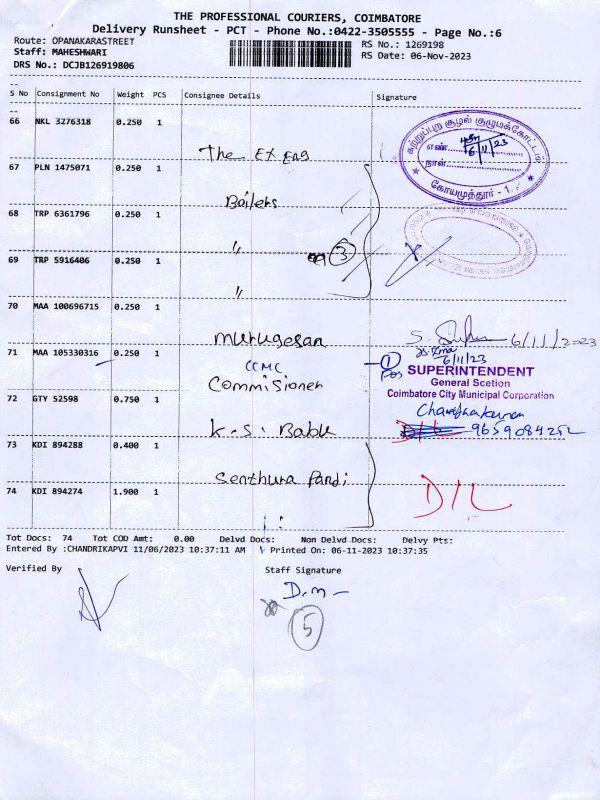 THE PROFESSIONAL COURIERS, COIMBATORE
Delivery Runsheet - PCT - Phone No.:0422-3505555 - Page No.:6
Route: OPANAKARASTREET
Staff: MAHESHWARI
DRS No.: DCJB126919806
RS No.: 1269198
RS Date: 06-Nov-2023
S No Consignment No Weight PCS Consignee Details Signature
66 NKL 3276318 0.250 1 The Ex Eng
காற்றுப்புற சூழல் குழுமக்கோட்டம்
எண்
நாள் 6/11/23
கோயமுத்தூர் - 1
67 PLN 1475071 0.250 1 Boilers
68 TRP 6361796 0.250 1 "
3
69 TRP 5916406 0.250 1 "
70 MAA 100696715 0.250 1 Murugesan
6/11/2023
71 MAA 105330316 0.250 1 CCMC Commisioner
1
6/11/23
SUPERINTENDENT
General Scetion
Coimbatore City Municipal Corporation
72 GTY 52598 0.750 1 K.S. Babu
9659084252
73 KDI 894288 0.400 1 Senthura Pandi
74 KDI 894274 1.900 1
D/L
Tot Docs: 74 Tot COD Amt: 0.00 Delvd Docs: Non Delvd Docs: Delvy Pts:
Entered By :CHANDRIKAPVI 11/06/2023 10:37:11 AM Printed On: 06-11-2023 10:37:35
Verified By
Staff Signature
D.M
5